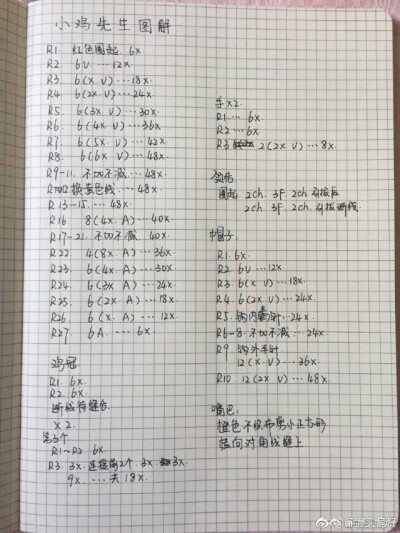 小鸡先生图解
R1 红色圈起 6x
R2 6V ⋯ 12x
R3 6(x.V) ⋯ 18x
R4 6(2x V) ⋯ 24x
R5. 6(3x V) ⋯ 30x
R6 6(4x V) ⋯ 36x
R7. 6(5x V) ⋯ 42x
R8 6(6x V) ⋯ 48x
R9-11. 不加不减 ⋯ 48x
R12 换黄色线 ⋯ 48x
R13-15 ⋯ 48x
R16 8(4x A) ⋯ 40x
R17-21 不加不减 40x
R22 4(8x A) ⋯ 36x
R23 6(4x A) ⋯ 30x
R24 6(3x A) ⋯ 24x
R25 6(2x A) ⋯ 18x
R26. 6(x. A) ⋯ 12x
R27 6A ⋯ 6x
鸡冠
R1. 6x.
R2. 6x.
断线待缝合
x 2
第3个
R1~R2 6x
R3. 3x. 连接前2个 3x 3x
9x. ⋯ 共18x.
手x2.
R1 ⋯ 6x.
R2 ⋯ 6x.
R3 2(2x V) ⋯ 8x.
圈起 2ch. 3F. 2ch 引拔后
2ch. 3F. 2ch 引拔断线
帽子:
R1. 6x.
R2 6V ⋯ 12x
R3. 6(x V) ⋯ 18x
R4. 6(2x V) ⋯ 24x
R5. 钩内半针. 24x
R6-8. 不加不减 ⋯ 24x
R9 钩外半针
12(x.V) ⋯ 36x
R10 12(2x V) ⋯ 48x
嘴巴:
橙色不织布剪小正方形
横向对角线缝上